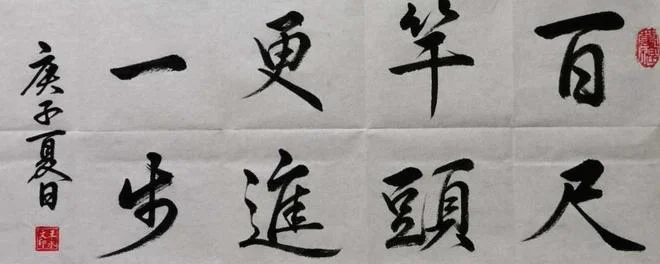 百尺
竿頭
更進
一步
庚子夏日